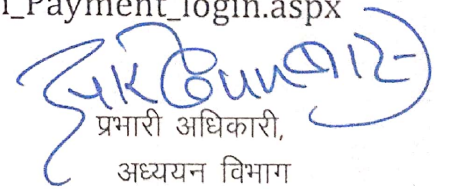 i_Payment_login.aspx
प्रभारी अधिकारी,
अध्ययन विभाग